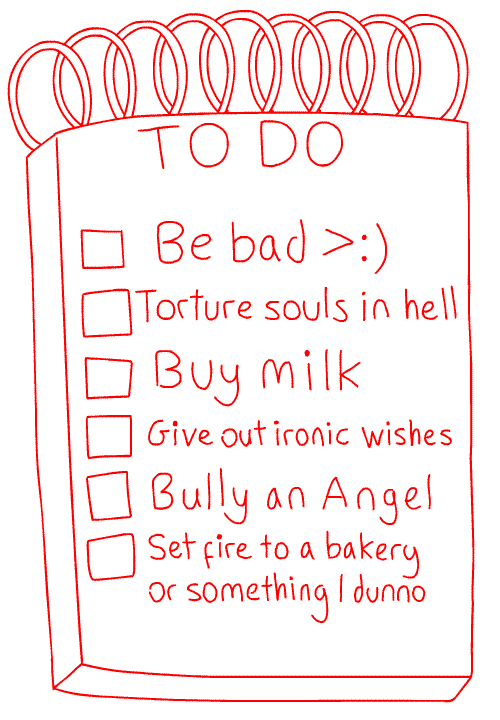 TO DO
Be bad >:)
Torture souls in hell
Buy milk
Give out ironic wishes
Bully an Angel
Set fire to a bakery
or something I dunno